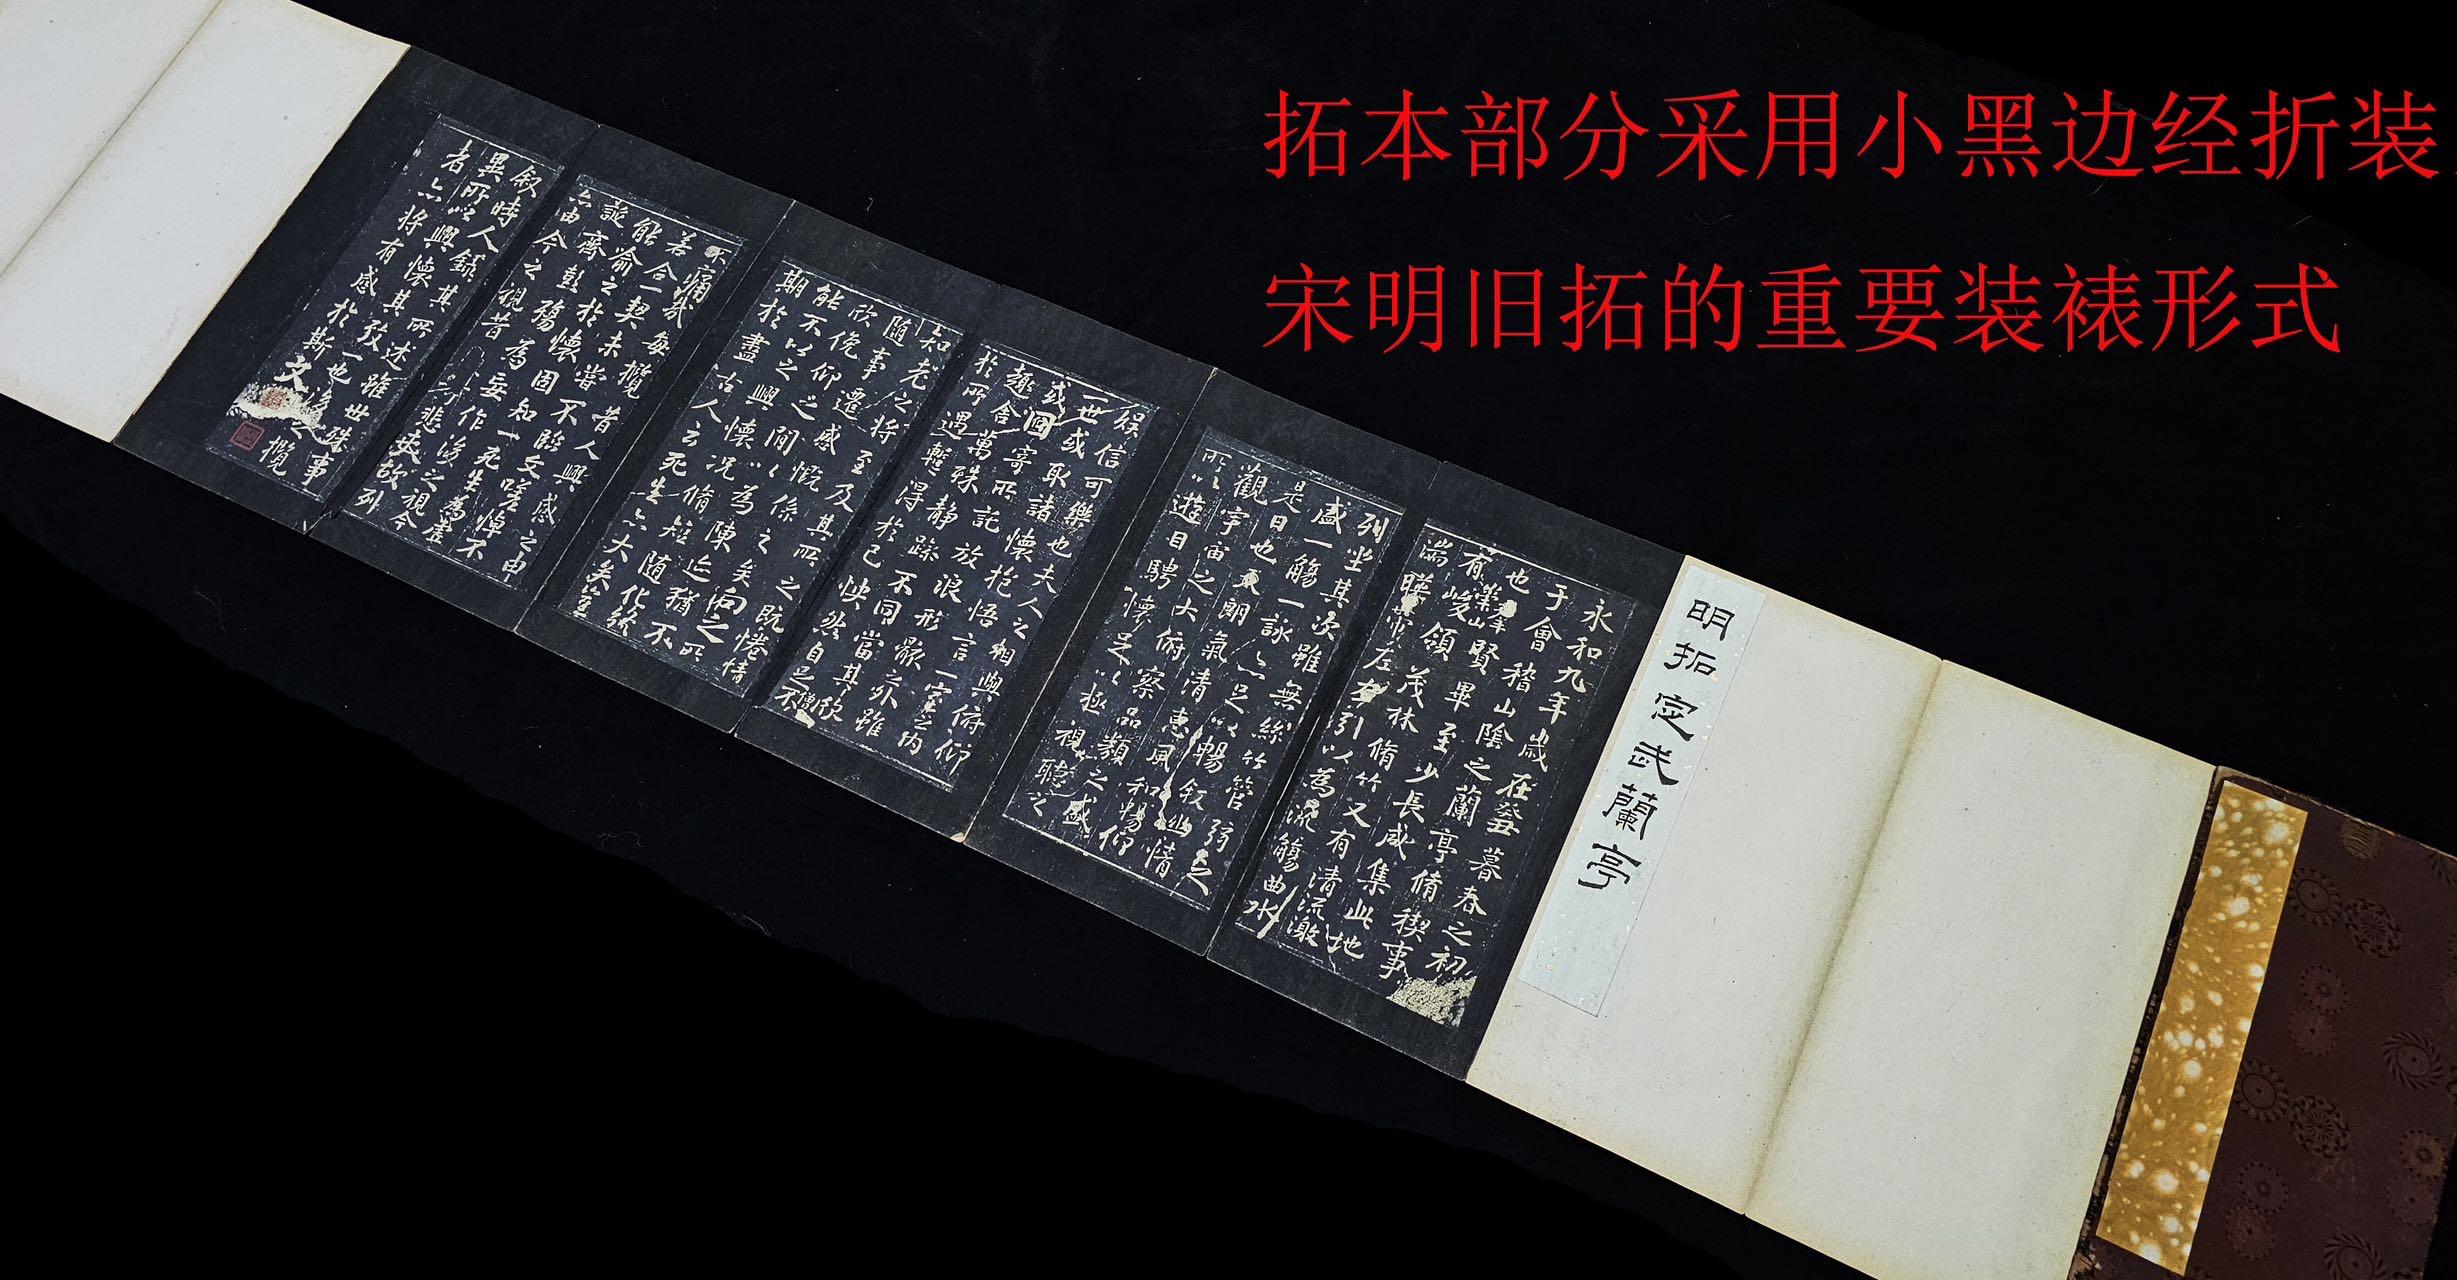 拓本部分采用小黑边经折装，
宋明旧拓的重要装裱形式
明拓定武蘭亭
永和九年歲在癸丑暮春之初
于會稽山陰之蘭亭脩稧事
也羣賢畢至少長咸集此地
有崇山峻領茂林脩竹又有清流激
湍暎帶左右引以為流觴曲水
列坐其次雖無絲竹管弦之
盛一觴一詠亦足以暢叙幽情
是日也天朗氣清惠風和暢仰
觀宇宙之大俯察品類之盛
所以遊目騁懷足以極視聽之
娛信可樂也夫人之相與俯仰
一世或取諸懷抱悟言一室之內
或因寄所託放浪形骸之外雖
趣舍萬殊靜躁不同當其欣
於所遇暫得於己怏然自足不
知老之將至及其所之既惓情
隨事遷感慨係之矣向之所
欣俛仰之間以為陳迹猶不
能不以之興懷況脩短隨化終
期於盡古人云死生亦大矣豈
不痛哉每攬昔人興感之由
若合一契未嘗不臨文嗟悼不
能喻之於懷固知一死生為虛
誕齊彭殤為妄作後之視今
亦由今之視昔悲夫故列
叙時人錄其所述雖世殊事
異所以興懷其致一也後之攬
者亦將有感於斯文